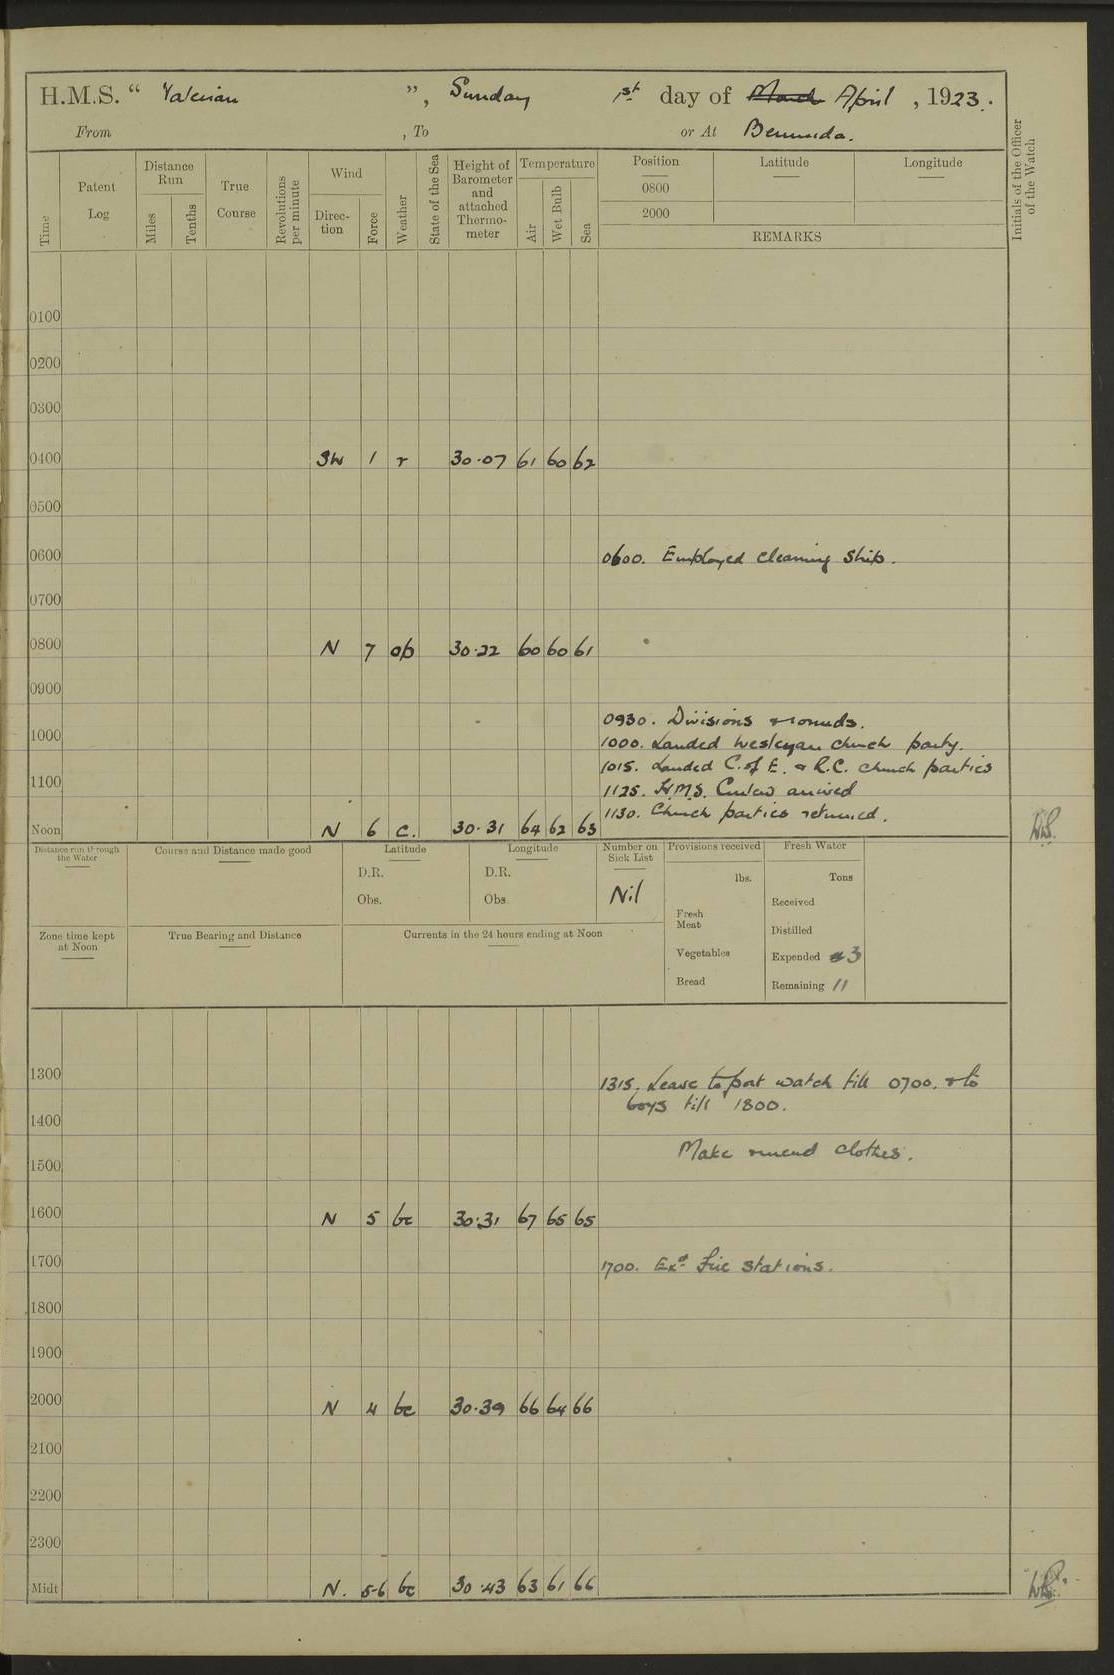 H.M.S. “ Valerian ”, Sunday 1st day of March April , 1923.
From , To or At Bermuda.
Time
Patent Log
Distance Run
Miles
Tenths
True Course
Revolutions per minute
Wind
Direction
Force
Weather
State of the Sea
Height of Barometer and attached Thermometer
Temperature
Air
Wet Bulb
Sea
Position Latitude Longitude
0800
2000
REMARKS
Initials of the Officer of the Watch
0100
0200
0300
0400 SW 1 r 30·07 61 60 62
0500
0600 0600. Employed cleaning ship.
0700
0800 N 7 op 30·22 60 60 61
0900
0930. Divisions & rounds.
1000 1000. Landed Wesleyan church party.
1015. Landed C. of E. & R.C. church parties
1100 1125. H.M.S. Curlew arrived
1130. Church parties returned.
Noon N 6 c. 30·31 64 62 63
Distance run through the Water
Course and Distance made good
Latitude
D.R.
Obs.
Longitude
D.R.
Obs
Number on Sick List
Nil
Provisions received
lbs.
Fresh Meat
Vegetables
Bread
Fresh Water
Tons
Received
Distilled
Expended 3
Remaining 11
Zone time kept at Noon
True Bearing and Distance
Currents in the 24 hours ending at Noon
1300 1315. Leave to port watch till 0700. & to
boys till 1800.
1400
Make & mend clothes.
1500
1600 N 5 bc 30·31 67 65 65
1700 1700. Exd Fire stations.
1800
1900
2000 N 4 bc 30·39 66 64 66
2100
2200
2300
Midt N. 5-6 bc 30·43 63 61 66